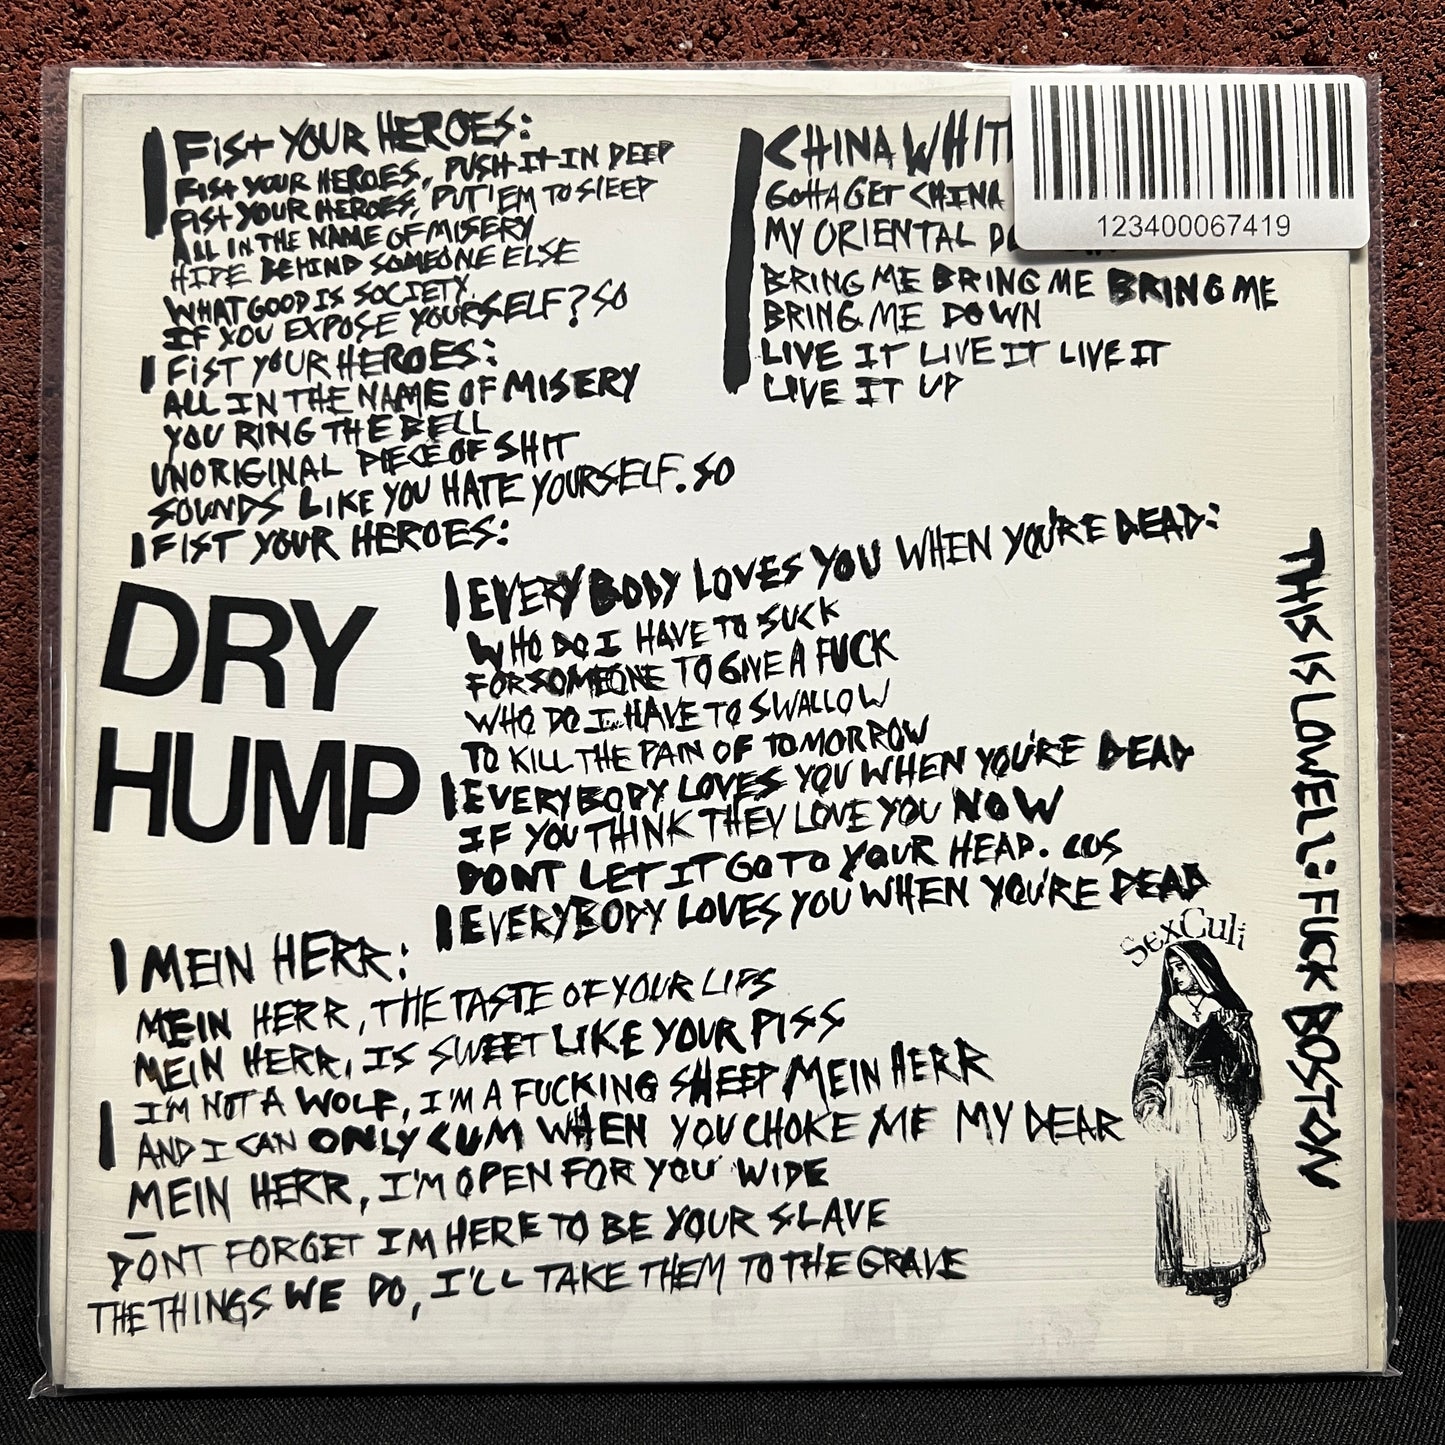 FIST YOUR HEROES:
FIST YOUR HEROES, PUSH IT IN DEEP
FIST YOUR HEROES, PUT 'EM TO SLEEP
ALL IN THE NAME OF MISERY
HIDE BEHIND SOMEONE ELSE
WHAT GOOD IS SOCIETY,
IF YOU EXPOSE YOURSELF? SO
FIST YOUR HEROES:
ALL IN THE NAME OF MISERY
YOU RING THE BELL
UNORIGINAL PIECE OF SHIT
SOUNDS LIKE YOU HATE YOURSELF. SO
FIST YOUR HEROES:
CHINA WHIT
GOTTA GET CHINA
MY ORIENTAL
BRING ME BRING ME BRING ME
BRING ME DOWN
LIVE IT LIVE IT LIVE IT
LIVE IT UP
123400067419
DRY
HUMP
EVERYBODY LOVES YOU WHEN YOU'RE DEAD:
WHO DO I HAVE TO SUCK
FOR SOMEONE TO GIVE A FUCK
WHO DO I HAVE TO SWALLOW
TO KILL THE PAIN OF TOMORROW
EVERYBODY LOVES YOU WHEN YOU'RE DEAD
IF YOU THINK THEY LOVE YOU NOW
DONT LET IT GO TO YOUR HEAD. CUS
EVERYBODY LOVES YOU WHEN YOU'RE DEAD
MEIN HERR:
MEIN HERR, THE TASTE OF YOUR LIPS
MEIN HERR, IS SWEET LIKE YOUR PISS
I'M NOT A WOLF, I'M A FUCKING SHEEP MEIN HERR
AND I CAN ONLY CUM WHEN YOU CHOKE ME MY DEAR
MEIN HERR, I'M OPEN FOR YOU WIDE
DONT FORGET IM HERE TO BE YOUR SLAVE
THE THINGS WE DO, I'LL TAKE THEM TO THE GRAVE
SexCult
THIS IS LOWELL: FUCK BOSTON